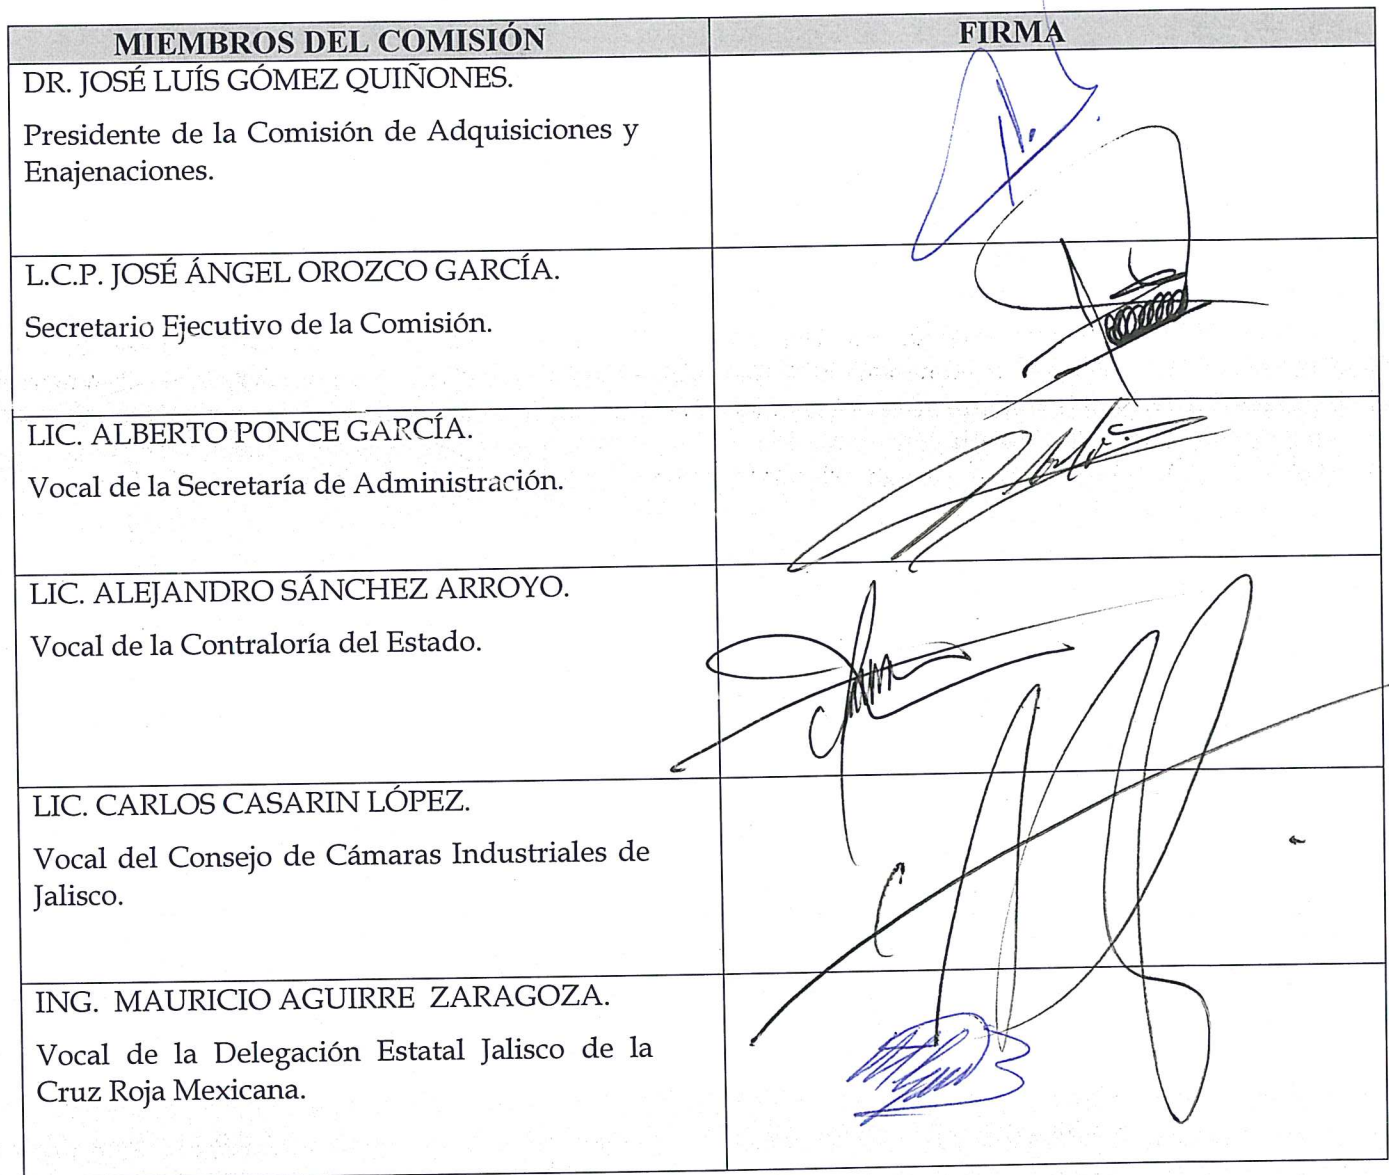 MIEMBROS DEL COMISIÓN
FIRMA
DR. JOSÉ LUÍS GÓMEZ QUIÑONES.
Presidente de la Comisión de Adquisiciones y
Enajenaciones.
L.C.P. JOSÉ ÁNGEL OROZCO GARCÍA.
Secretario Ejecutivo de la Comisión.
LIC. ALBERTO PONCE GARCÍA.
Vocal de la Secretaría de Administración.
LIC. ALEJANDRO SÁNCHEZ ARROYO.
Vocal de la Contraloría del Estado.
LIC. CARLOS CASARIN LÓPEZ.
Vocal del Consejo de Cámaras Industriales de
Jalisco.
ING. MAURICIO AGUIRRE ZARAGOZA.
Vocal de la Delegación Estatal Jalisco de la
Cruz Roja Mexicana.